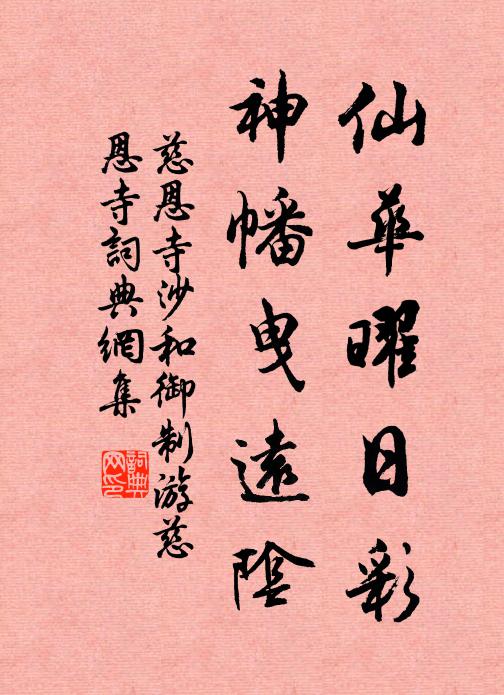 仙華曜日彩
神幡曳遠陰
慈恩寺沙和御制游慈
恩寺詞典網集
詞典网印